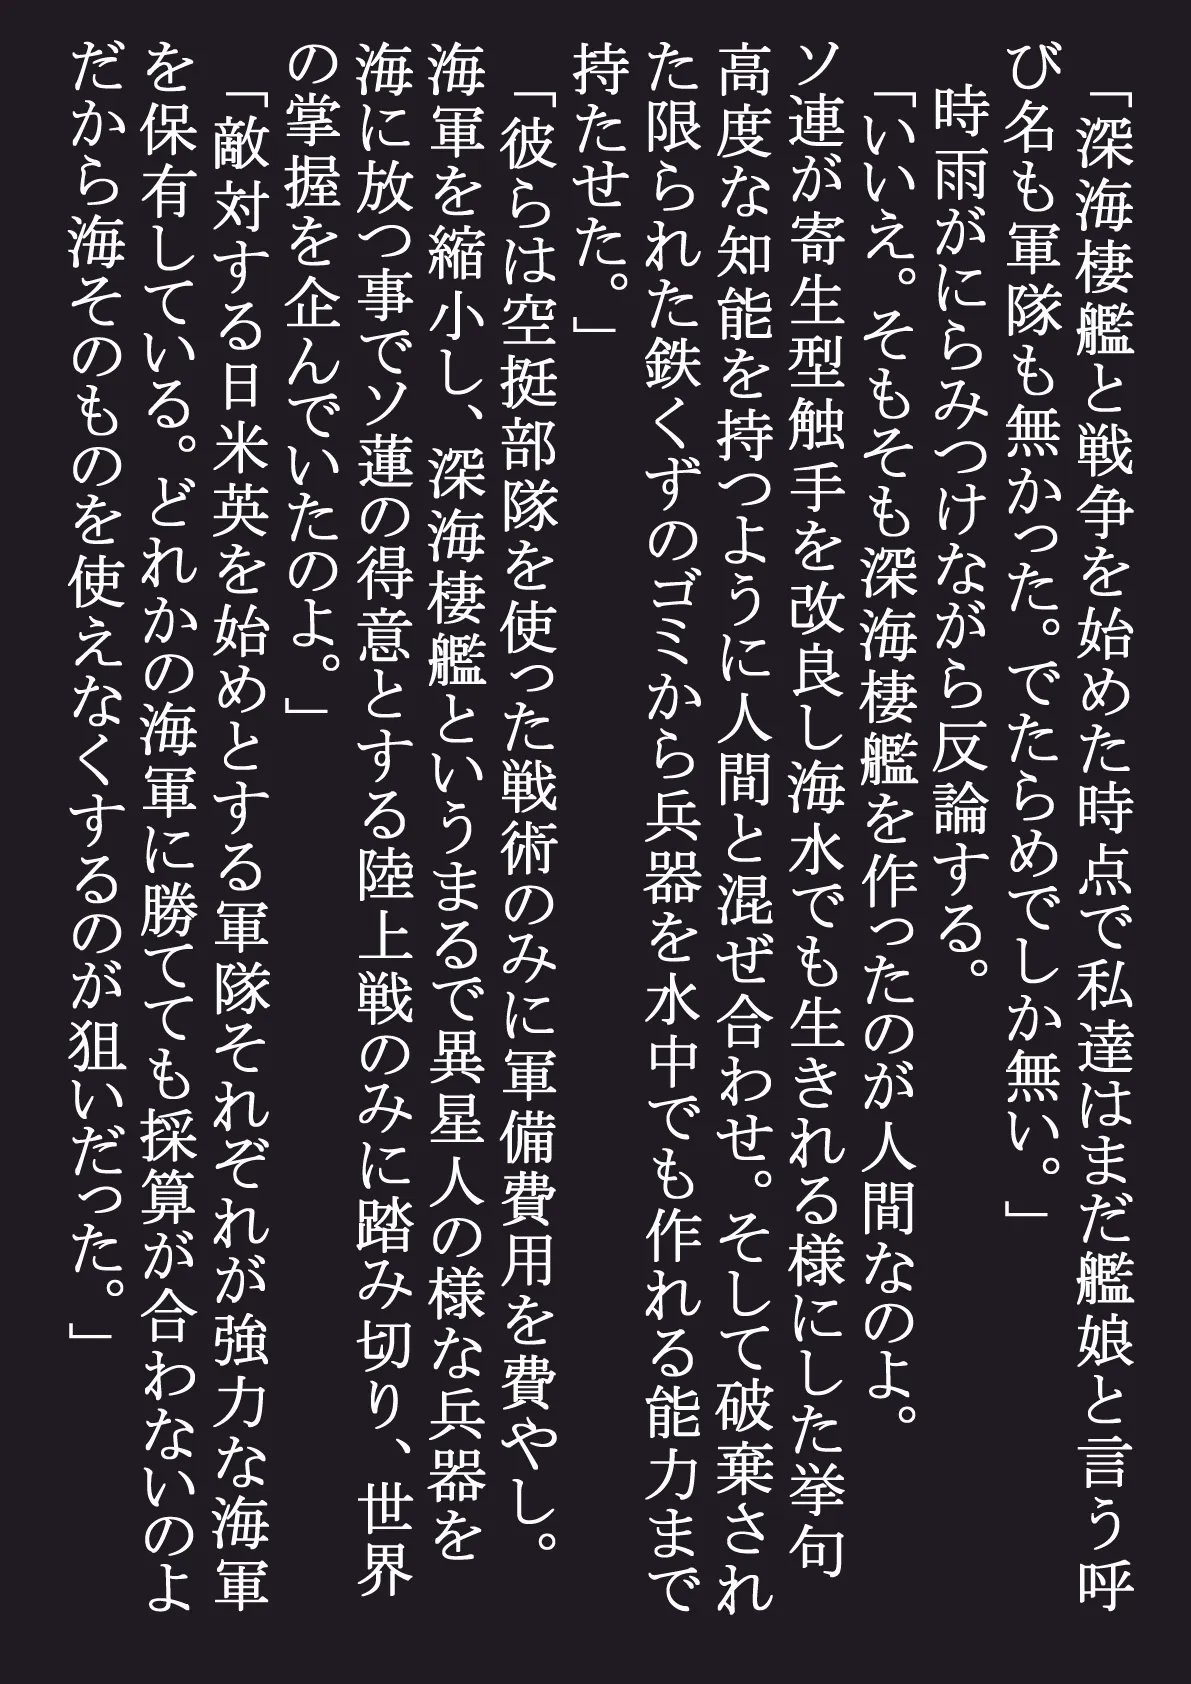 「深海棲艦と戦争を始めた時点で私達はまだ艦娘と言う呼
び名も軍隊も無かった。でたらめでしか無い。」
時雨がにらみつけながら反論する。
「いいえ。そもそも深海棲艦を作ったのが人間なのよ。
ソ連が寄生型触手を改良し海水でも生きれる様にした挙句
高度な知能を持つように人間と混ぜ合わせ。そして破棄され
た限られた鉄くずのゴミから兵器を水中でも作れる能力まで
持たせた。」
「彼らは空挺部隊を使った戦術のみに軍備費用を費やし。
海軍を縮小し、深海棲艦というまるで異星人の様な兵器を
海に放つ事でソ蓮の得意とする陸上戦のみに踏み切り、世界
の掌握を企んでいたのよ。」
「敵対する日米英を始めとする軍隊それぞれが強力な海軍
を保有している。どれかの海軍に勝てても採算が合わないのよ
だから海そのものを使えなくするのが狙いだった。」